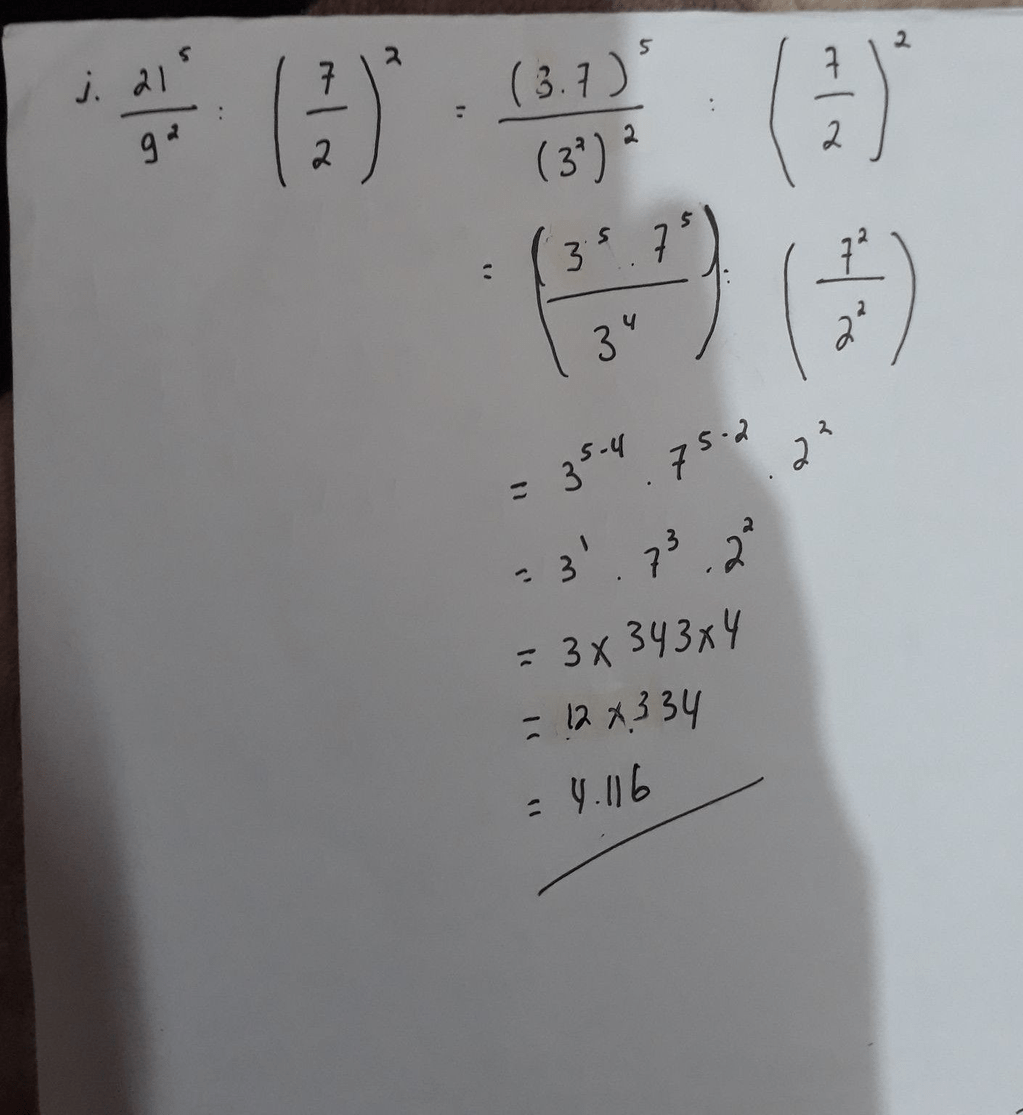 j. 21⁵/9² : (7/2)² = (3.7)⁵/(3²)² : (7/2)²
= (3⁵ . 7⁵/3⁴) : (7²/2²)
= 3⁵⁻⁴ . 7⁵⁻² . 2²
= 3¹ . 7³ . 2²
= 3 x 343 x 4
= 12 x 334
= 4.116